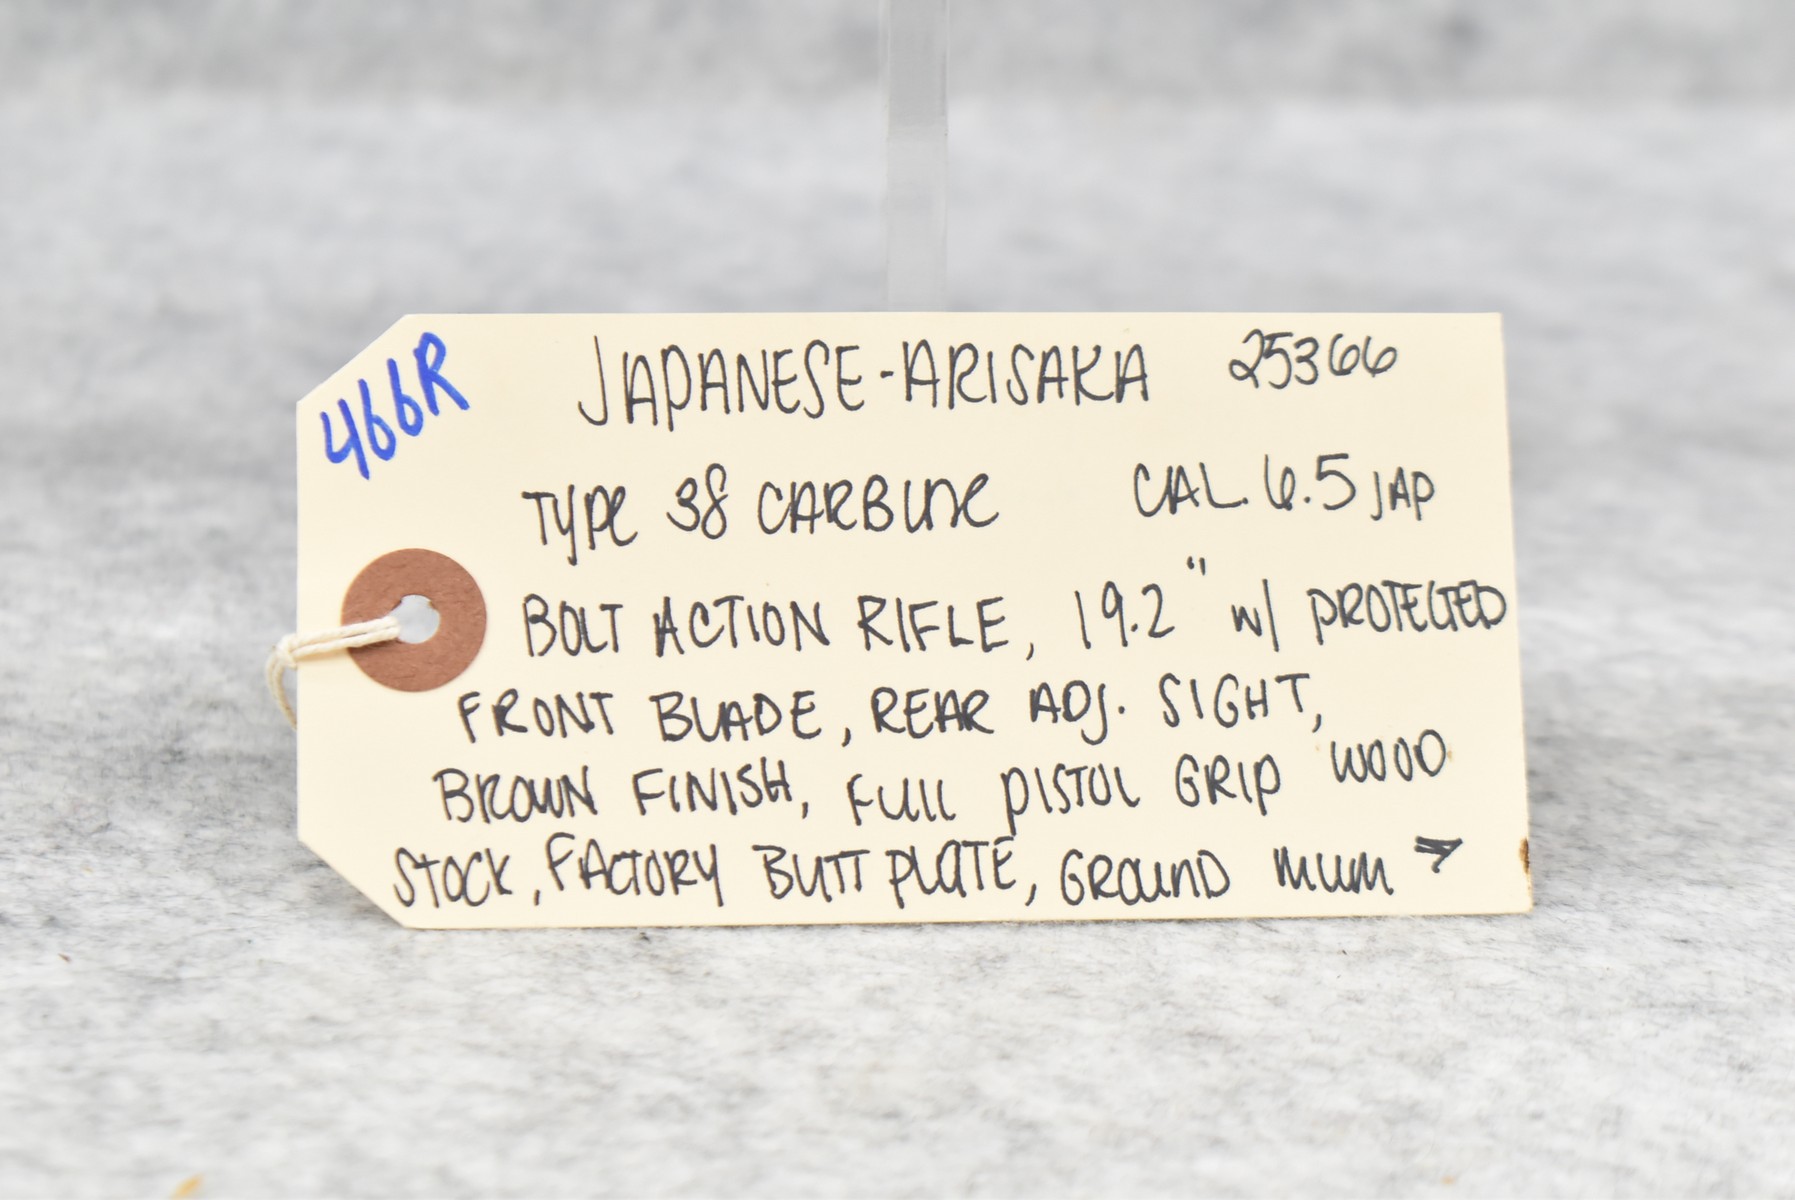 466R
JAPANESE-ARISAKA 25366
TYPE 38 CARBINE CAL. 6.5 JAP
BOLT ACTION RIFLE, 19.2" W/ PROTECTED
FRONT BLADE, REAR ADJ. SIGHT,
BROWN FINISH, FULL PISTOL GRIP WOOD
STOCK, FACTORY BUTT PLATE, GROUND MUM →